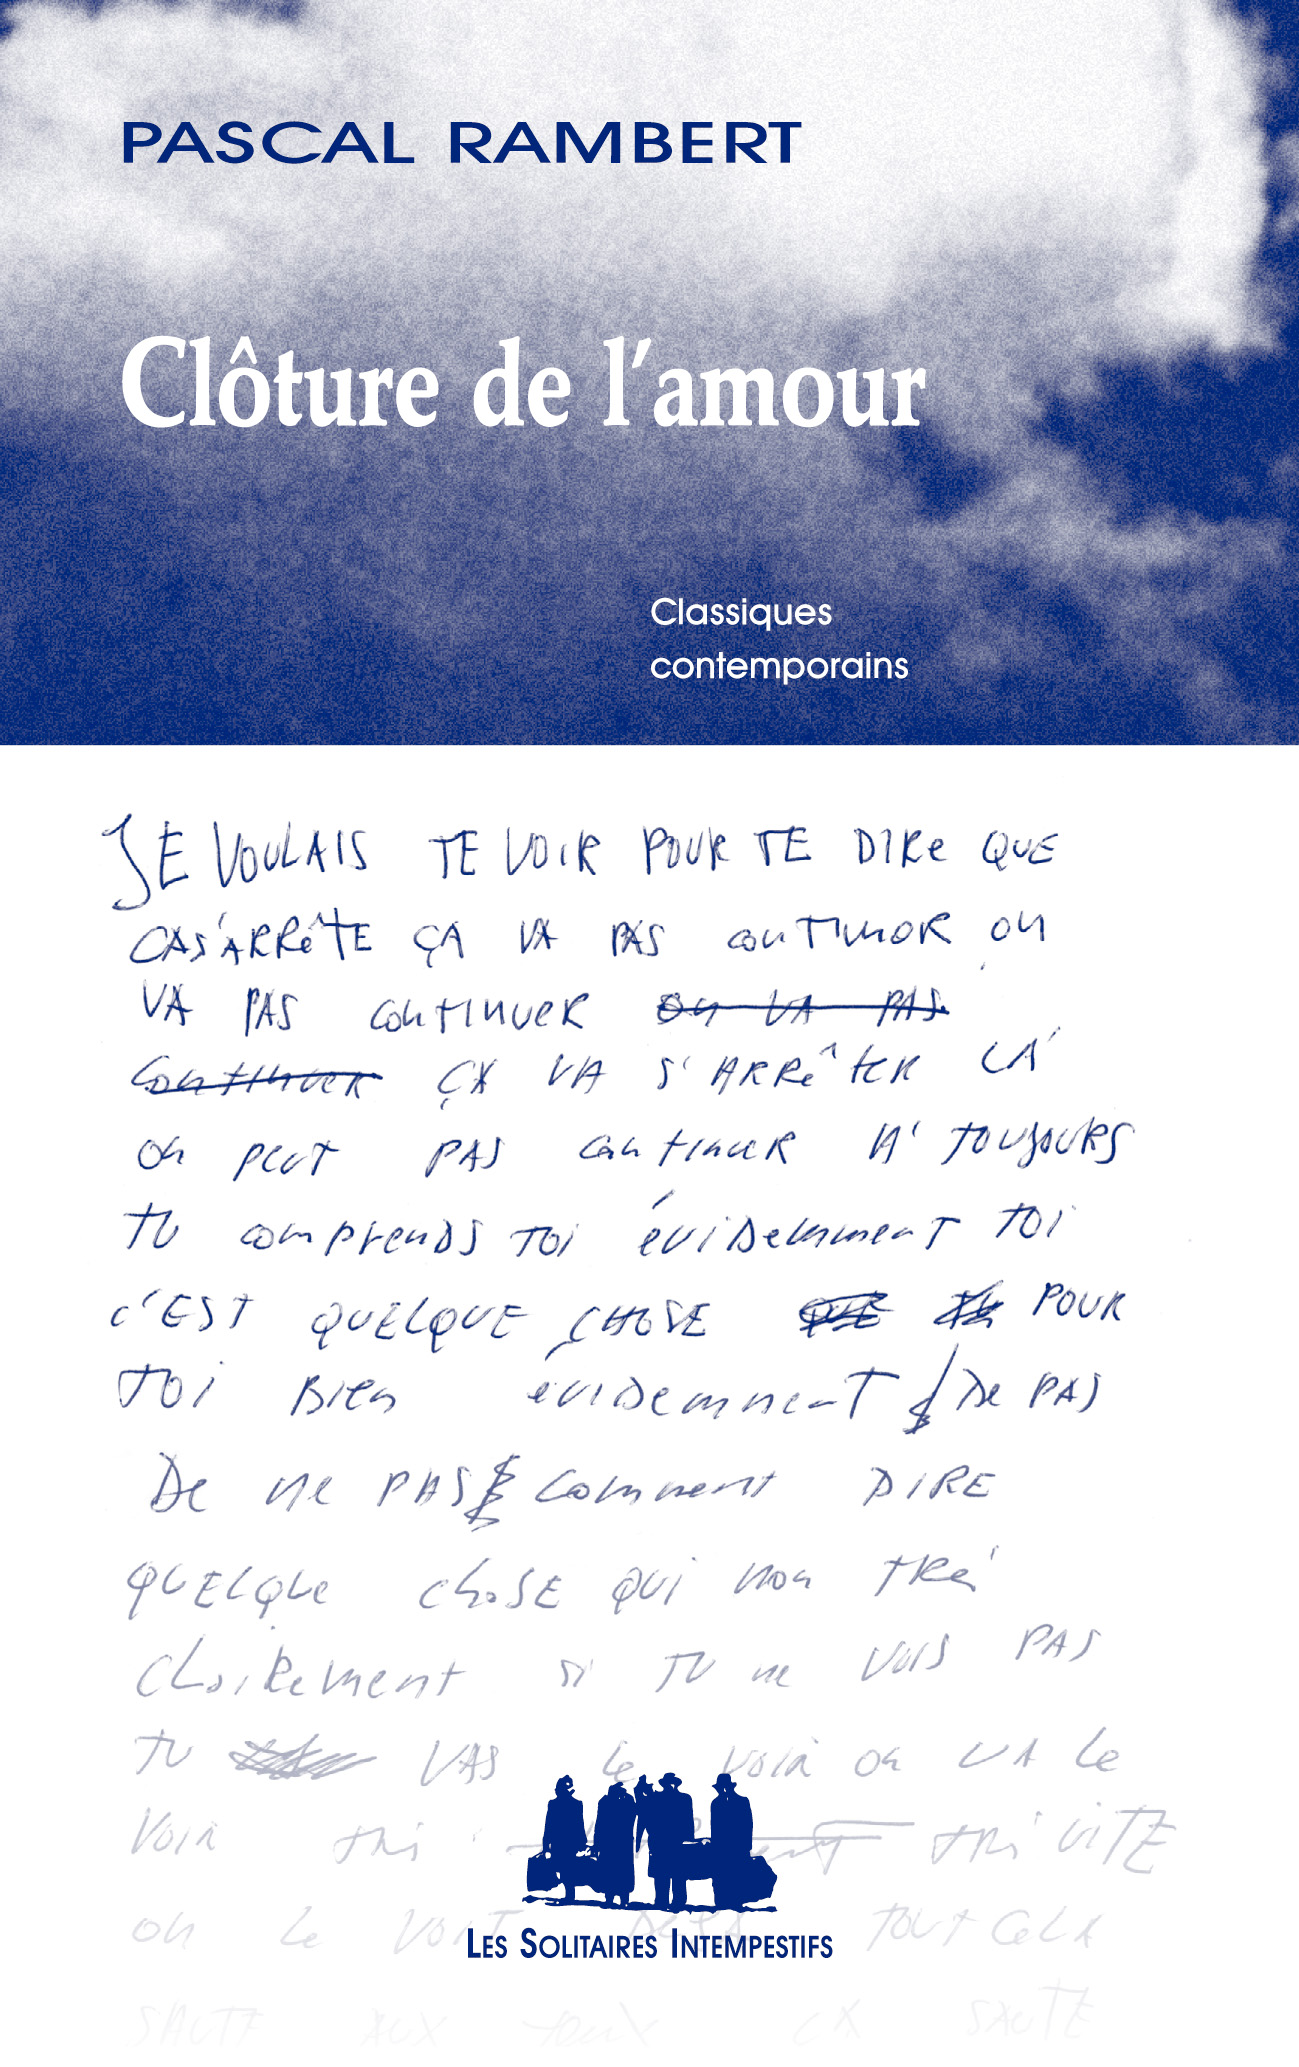 PASCAL RAMBERT
Clôture de l'amour
Classiques
contemporains
JE VOULAIS TE VOIR POUR TE DIRE QUE
ÇA S'ARRÊTE ÇA VA PAS CONTINUER ON
VA PAS CONTINUER ON VA PAS
CONTINUER ÇA VA S'ARRÊTER LÀ
ON PEUT PAS CONTINUER À TOUJOURS
TU COMPRENDS TOI ÉVIDEMMENT TOI
C'EST QUELQUE CHOSE QUE POUR
TOI BIEN ÉVIDEMMENT DE PAS
DE NE PAS COMMENT DIRE
QUELQUE CHOSE QUI NON TRÈS
CLAIREMENT SI TU NE VOIS PAS
TU VAS le VOIR ON VA le
VOIR TRÈS TRÈS VITE
ON le VOIT TOUT CELA
SAUTE AUX YEUX ÇA SAUTE
LES SOLITAIRES INTEMPESTIFS